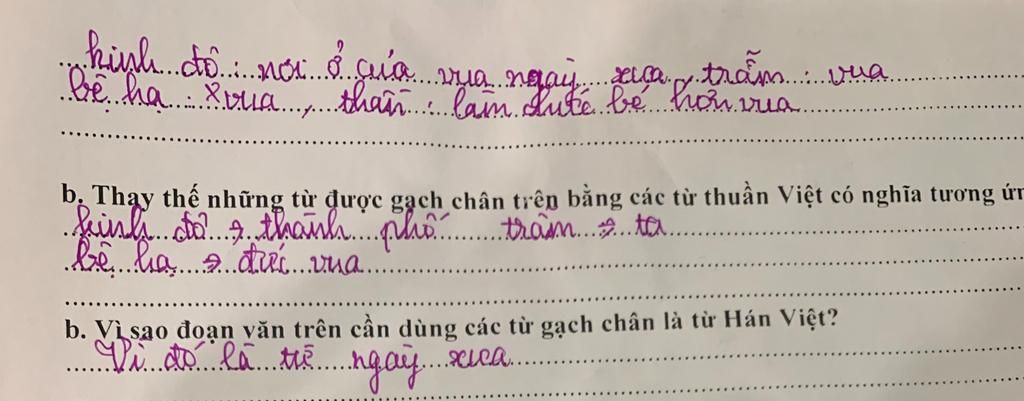 kinh đô : nơi ở của vua ngày xưa , trẫm : vua
bệ hạ : vua , thần : làm bé hơn vua
b. Thay thế những từ được gạch chân trên bằng các từ thuần Việt có nghĩa tương ứn
kinh đô → thành phố trẫm → ta
bệ hạ → đức vua
b. Vì sao đoạn văn trên cần dùng các từ gạch chân là từ Hán Việt?
Vì đó là từ ngày xưa